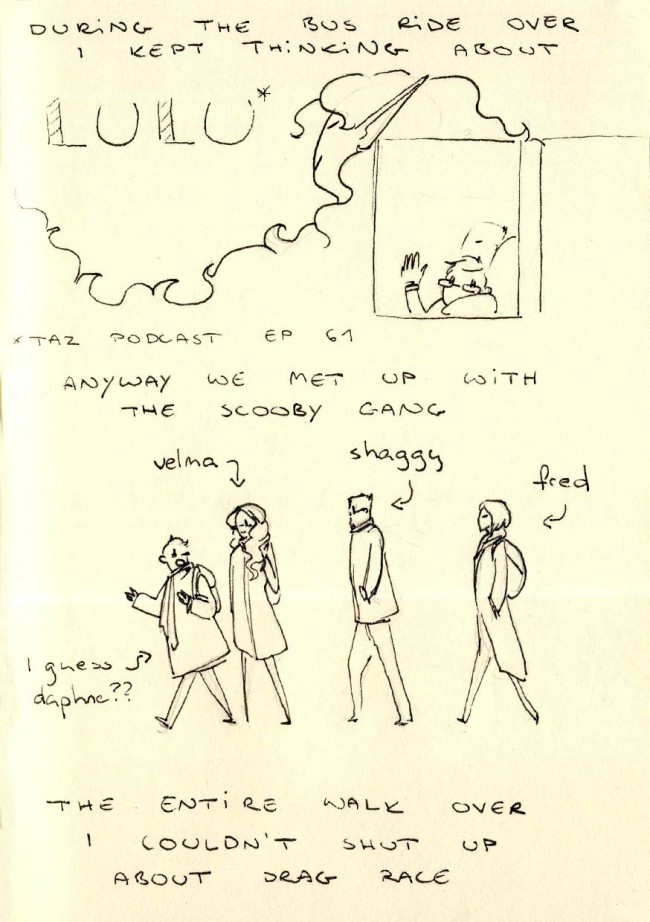 DURING THE BUS RIDE OVER
I KEPT THINKING ABOUT
LULU*
*TAZ PODCAST EP 61
ANYWAY WE MET UP WITH
THE SCOOBY GANG
velma
shaggy
fred
I guess
daphne??
THE ENTIRE WALK OVER
I COULDN'T SHUT UP
ABOUT DRAG RACE